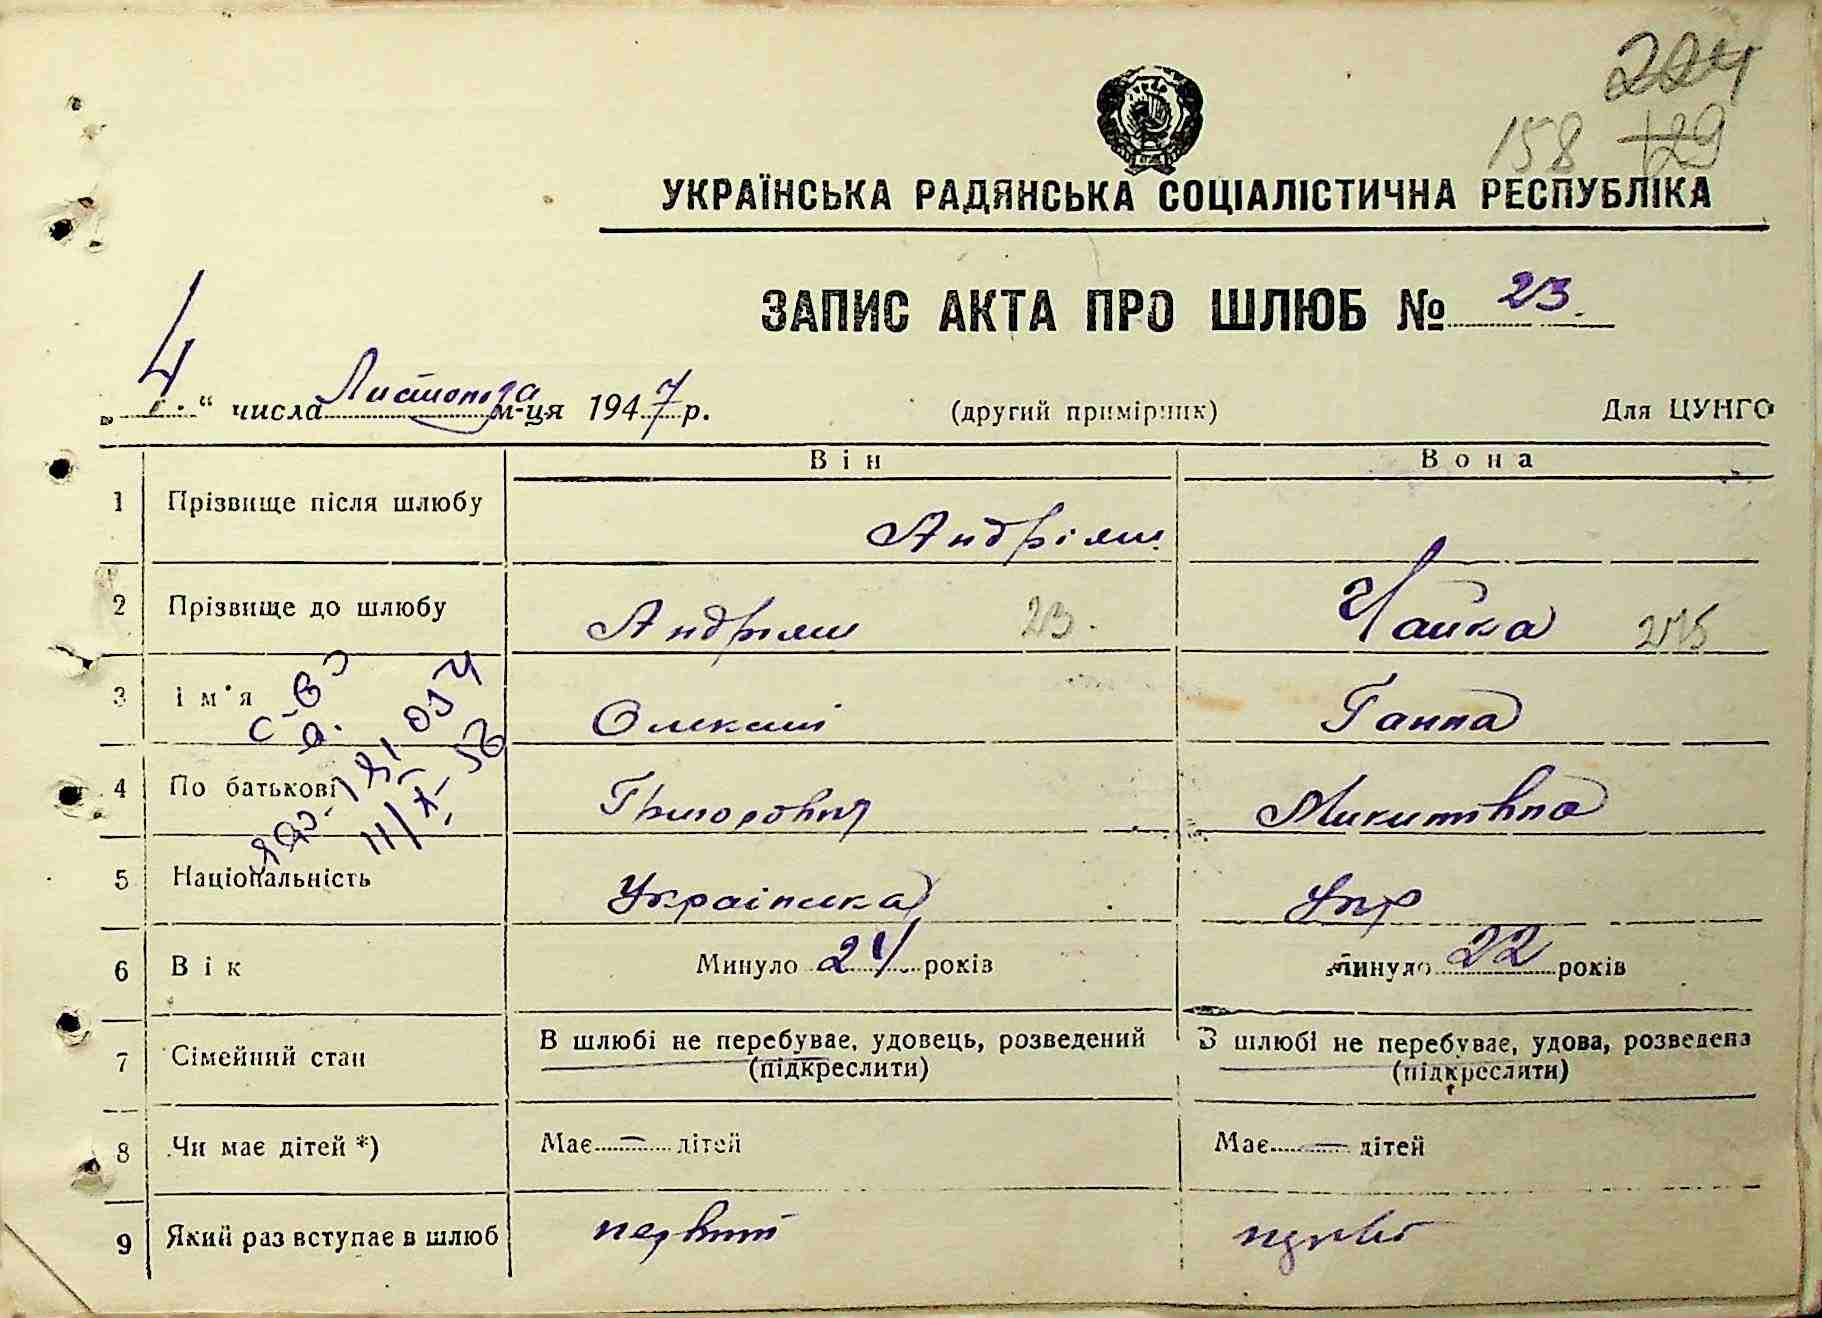 224
158 129
УКРАЇНСЬКА РАДЯНСЬКА СОЦІАЛІСТИЧНА РЕСПУБЛІКА
ЗАПИС АКТА ПРО ШЛЮБ № 23.
„4“ числа Листопада м-ця 1947 р. (другий примірник) Для ЦУНГО
Він Вона
1 Прізвище після шлюбу Андріяш
2 Прізвище до шлюбу Андріяш 23. Чайка 275
3 ім'я Олексій Ганна
4 По батькові Григорович Микитівна
5 Національність Українка Укр
6 Вік Минуло 24 років Минуло 22 років
7 Сімейний стан В шлюбі не перебуває, удовець, розведений (підкреслити) В шлюбі не перебуває, удова, розведена (підкреслити)
8 Чи має дітей *) Має — дітей Має — дітей
9 Який раз вступає в шлюб первий